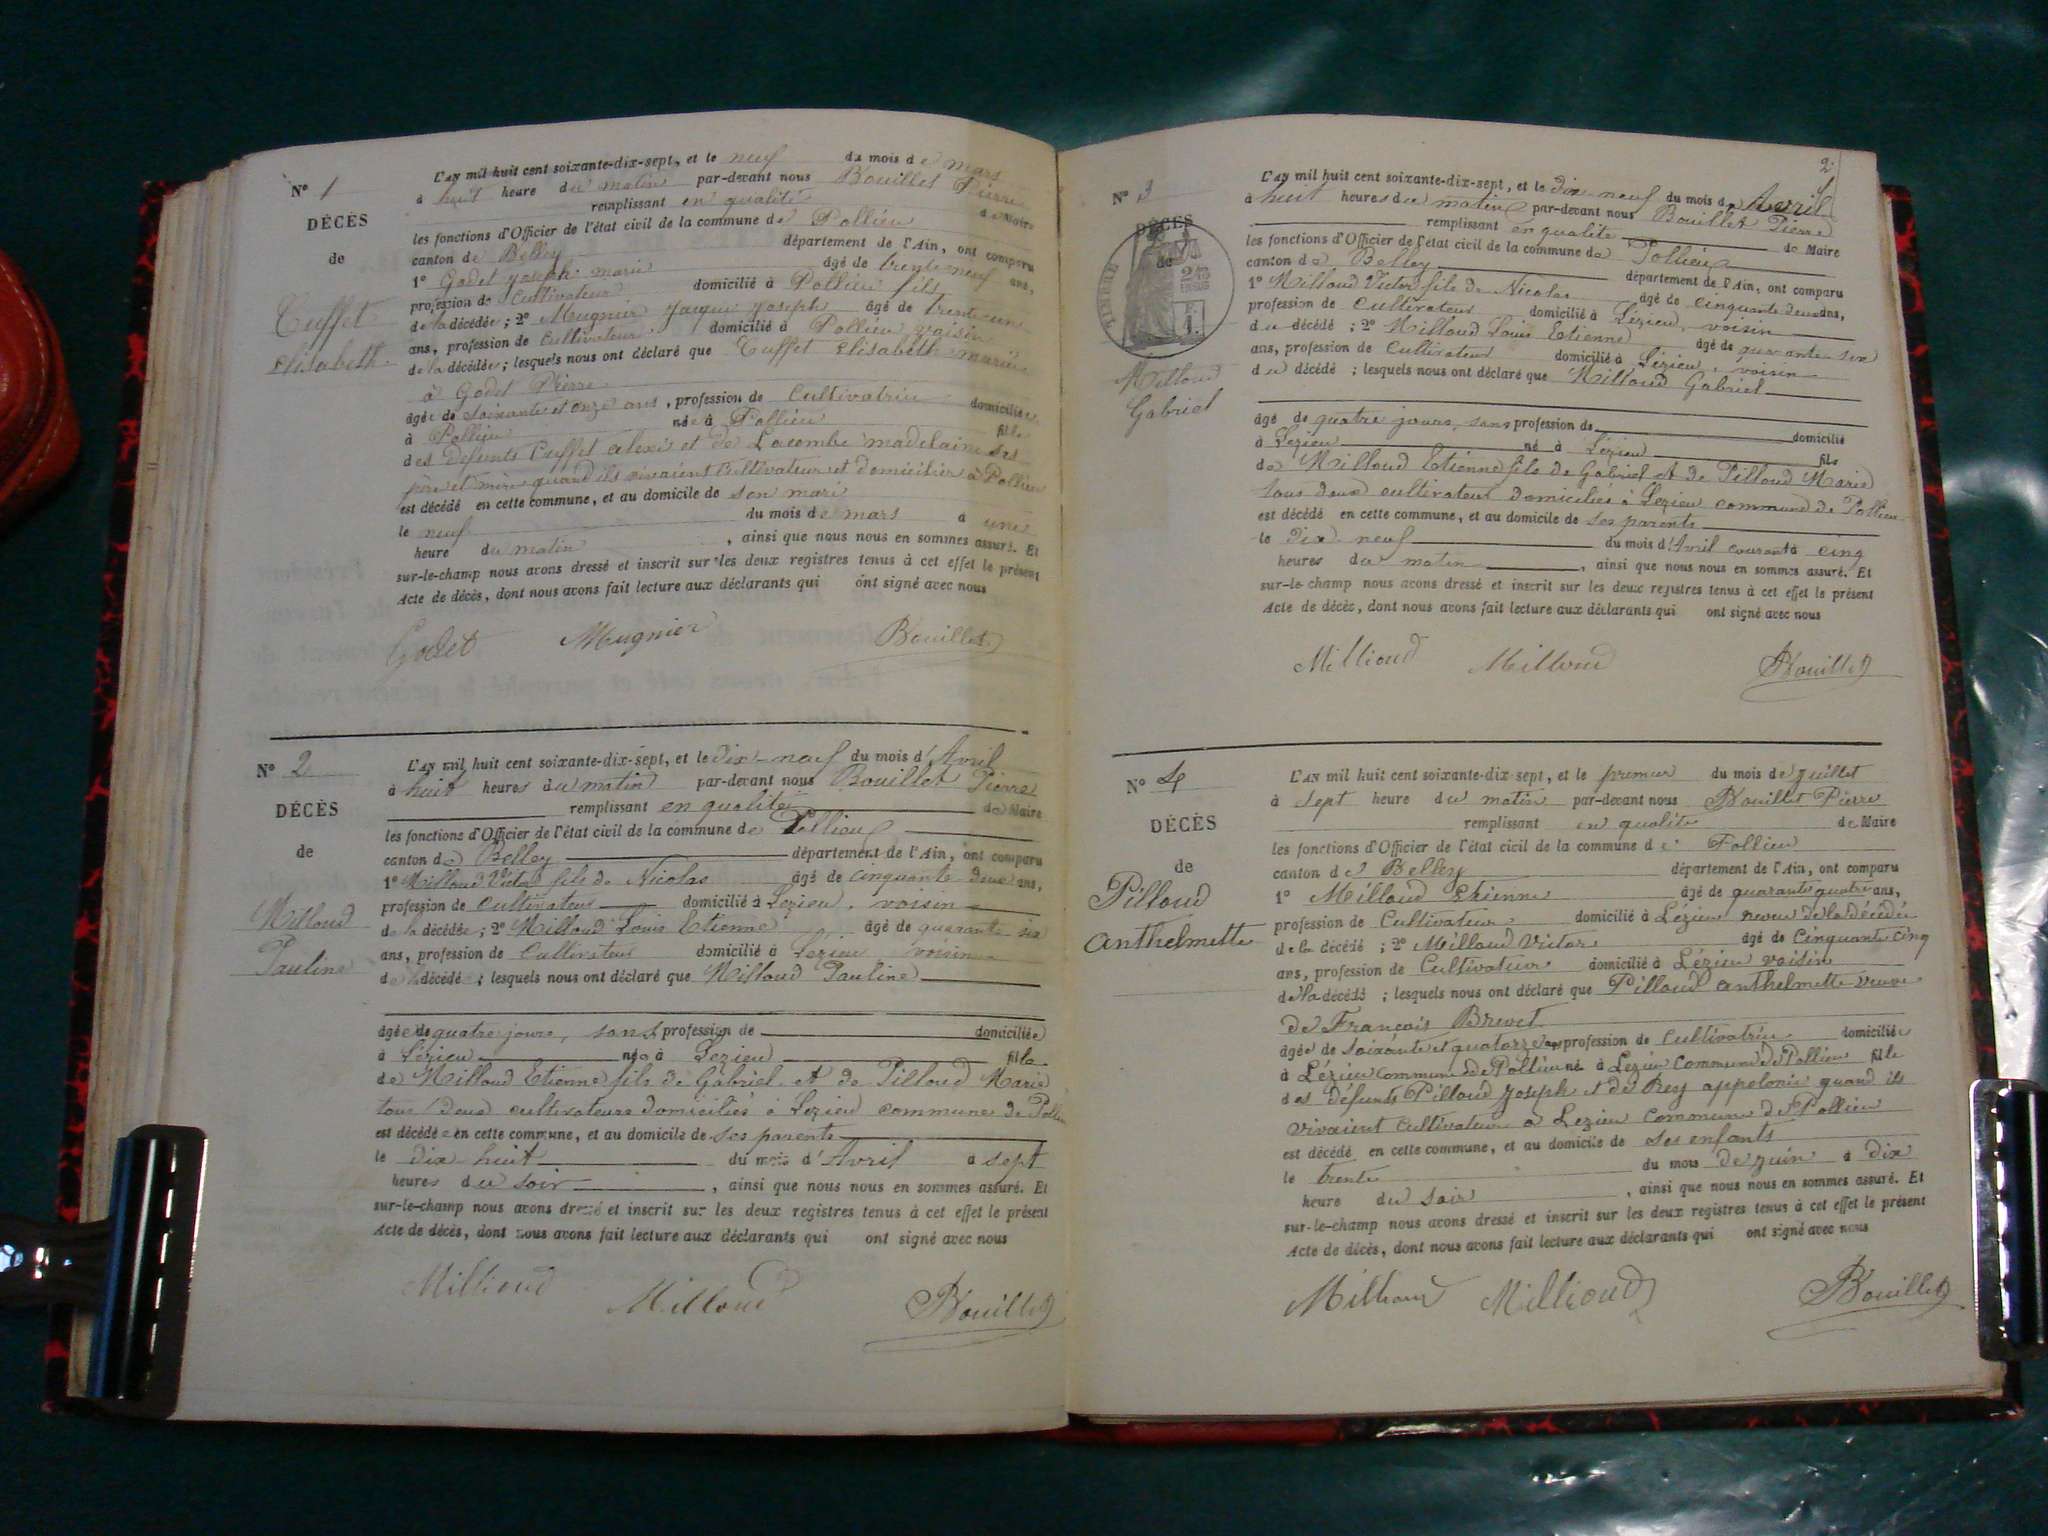 N° 1
DÉCÈS
de
Cuffet
Elisabeth
L'AN mil huit cent soixante-dix-sept, et le neuf du mois de mars
à huit heure du matin par-devant nous Bouillet Pierre
remplissant en qualité de Maire
les fonctions d'Officier de l'état civil de la commune de Pollieu
canton de Belley département de l'Ain, ont comparu
1° Godet Joseph marie âgé de trente neuf ans,
profession de Cultivateur domicilié à Pollieu fils
de la décédée ; 2° Meugnier Jacque Joseph âgé de trente un
ans, profession de Cultivateur domicilié à Pollieu voisin
de la décédée ; lesquels nous ont déclaré que Cuffet Elisabeth mariée
à Godet Pierre
âgée de soixante et onze ans, profession de Cultivatrice domiciliée
à Pollieu née à Pollieu fille
des défunts Cuffet alexi et de Lacombe madelaine ses
père et mère quand ils vivaient Cultivateur et domicilier à Pollieu
est décédé en cette commune, et au domicile de son mari
le neuf du mois de mars à une
heure du matin , ainsi que nous nous en sommes assuré. Et
sur-le-champ nous avons dressé et inscrit sur les deux registres tenus à cet effet le présent
Acte de décès, dont nous avons fait lecture aux déclarants qui ont signé avec nous
Godet Meugnier Bouillet
N° 2
DÉCÈS
de
Milloud
Pauline
L'AN mil huit cent soixante-dix-sept, et le dix-neuf du mois d'Avril
à huit heures du matin par-devant nous Bouillet Pierre
remplissant en qualité de Maire
les fonctions d'Officier de l'état civil de la commune de Pollieu
canton de Belley département de l'Ain, ont comparu
1° Milloud Victor fils de Nicolas âgé de cinquante deux ans,
profession de Cultivateur domicilié à Lézieu, voisin
de la décédée ; 2° Milloud Louis Etienne âgé de quarante six
ans, profession de Cultivateur domicilié à Lezieu voisin
de la décédé ; lesquels nous ont déclaré que Milloud Pauline
âgée de quatre jours, sans profession de domiciliée
à Lézieu née à Lezieu fille
de Milloud Etienne fils de Gabriel et de Pilloud Marie
tous deux cultivateurs domiciliés à Lezieu commune de Pollieu
est décédée en cette commune, et au domicile de ses parents
le dix huit du mois d'Avril à sept
heures du soir , ainsi que nous nous en sommes assuré. Et
sur-le-champ nous avons dressé et inscrit sur les deux registres tenus à cet effet le présent
Acte de décès, dont nous avons fait lecture aux déclarants qui ont signé avec nous
Millioud Milloud Bouillet
2
N° 3
DÉCÈS
de
TIMBRE
Milloud
Gabriel
L'AN mil huit cent soixante-dix-sept, et le dix neuf du mois d'Avril
à huit heures du matin par-devant nous Bouillet Pierre
remplissant en qualité de Maire
les fonctions d'Officier de l'état civil de la commune de Pollieu
canton de Belley département de l'Ain, ont comparu
1° Milloud Victor fils de Nicolas âgé de cinquante deux ans,
profession de Cultivateur domicilié à Lézieu, voisin
du décédé ; 2° Milloud Louis Etienne âgé de quarante six
ans, profession de Cultivateur domicilié à Lézieu, voisin
du décédé ; lesquels nous ont déclaré que Milloud Gabriel
âgé de quatre jours, sans profession de domicilié
à Lezieu né à Lézieu fils
de Milloud Etienne fils de Gabriel et de Pilloud Marie
tous deux cultivateur domiciliés à Lezieu commune de Pollieu
est décédé en cette commune, et au domicile de ses parents
le dix neuf du mois d'Avril courant à cinq
heures du matin , ainsi que nous nous en sommes assuré. Et
sur-le-champ nous avons dressé et inscrit sur les deux registres tenus à cet effet le présent
Acte de décès, dont nous avons fait lecture aux déclarants qui ont signé avec nous
Millioud Milloud Bouillet
N° 4
DÉCÈS
de
Pilloud
anthelmette
L'AN mil huit cent soixante-dix sept, et le premier du mois de Juillet
à sept heure du matin par-devant nous Bouillet Pierre
remplissant en qualité de Maire
les fonctions d'Officier de l'état civil de la commune de Pollieu
canton de Belley département de l'Ain, ont comparu
1° Milloud Etienne âgé de quarante quatre ans,
profession de Cultivateur domicilié à Lézieu neveu de la décédée
de la décédé ; 2° Milloud Victor âgé de Cinquante cinq
ans, profession de Cultivateur domicilié à Lézieu voisin
de la décédé ; lesquels nous ont déclaré que Pilloud anthelmette veuve
de François Brevet
âgée de soixante et quatorze ans profession de Cultivatrice domiciliée
à Lézieu commune de Pollieu né à Lézieu Commune de Pollieu fille
des défunts Pilloud Joseph et de Rey appolonie quand ils
vivaient Cultivateur à Lezieu commune de Pollieu
est décédé en cette commune, et au domicile de ses enfants
le trente du mois de juin à dix
heure du soir , ainsi que nous nous en sommes assuré. Et
sur-le-champ nous avons dressé et inscrit sur les deux registres tenus à cet effet le présent
Acte de décès, dont nous avons fait lecture aux déclarants qui ont signé avec nous
Millioud Millioud Bouillet